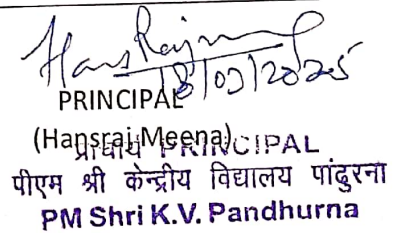 Hansraj
18/07/2025
PRINCIPAL
(Hansraj Meena)
प्राचार्य PRINCIPAL
पीएम श्री केन्द्रीय विद्यालय पांढुरना
PM Shri K.V. Pandhurna